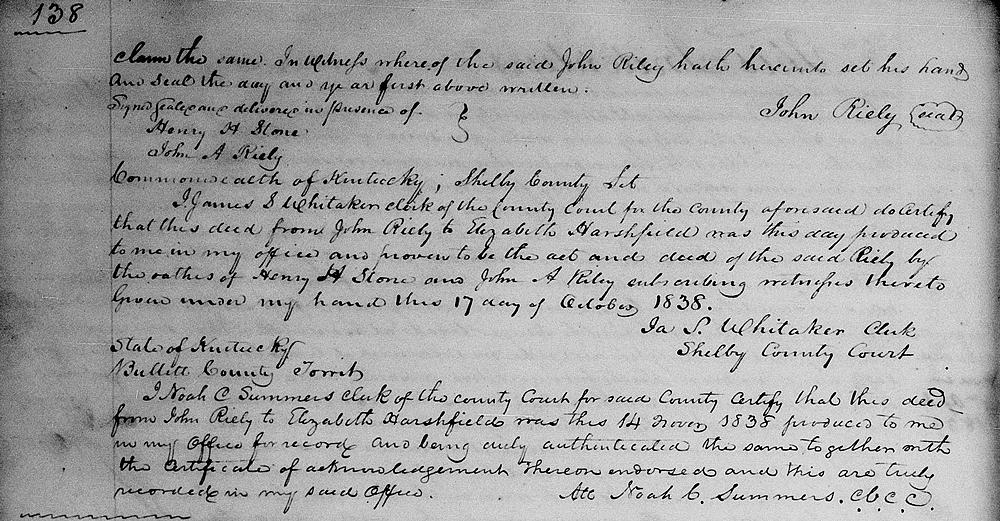 138
claim the same. In Witness where of the said John Riley hath hereinto set his hand
and seal the day and year first above written.
Signed sealed and delivered in presence of.
John Riely (seal)
Henry H Stone
John A Riely
Commonwealth of Kentucky; Shelby County Sct
I James S Whitaker clerk of the County Court for the County aforesaid do certify
that this deed from John Riely to Elizabeth Harshfield was this day produced
to me in my office and proven to be the act and deed of the said Riely by
the oathes of Henry H Stone and John A Riley subscribing witnesses thereto
Given under my hand this 17 day of October 1838.
Ja S. Whitaker Clerk
Shelby County Court
State of Kentucky
Bullitt County
I Noah C Summers clerk of the county Court for said County certify that this deed
from John Riely to Elizabeth Harshfield was this 14 Novr 1838 produced to me
in my office for record and being duly authenticated the same together with
the certificate of acknowledgement thereon endorsed and this are truly
recorded in my said office.
Att Noah C. Summers. C.B.C.C.